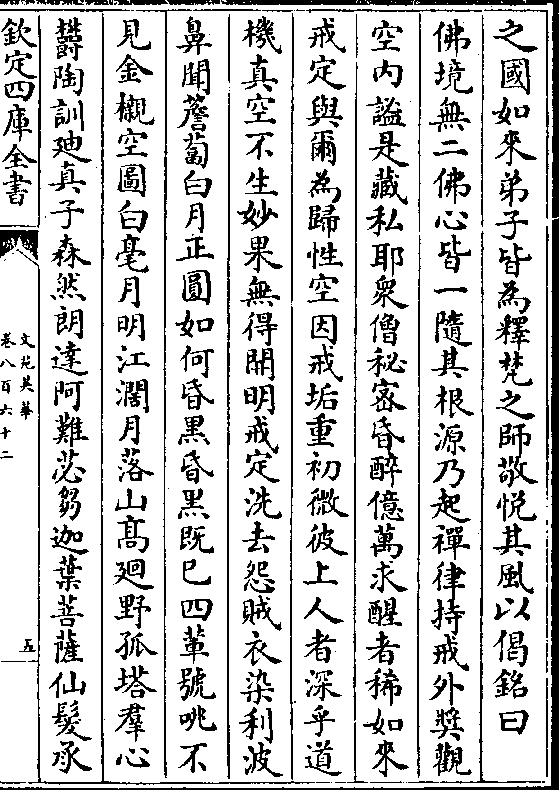 之國如來弟子皆為釋梵之師敬悅其風以偈銘曰
佛境無二佛心皆一隨其根源乃起禪律持戒外獎觀
空内謐是藏私耶衆僧秘密昏醉億萬求醒者稀如來
戒定與爾為歸性空因戒垢重初微彼上人者深乎道
機真空不生妙果無得開明戒定洗去怨賊衣染利波
鼻聞薝蔔白月正圓如何昏黑昏黑既已四輩號咷不
見金櫬空圖白毫月明江濶月落山高廻野孤塔羣心
欝陶訓廸真子森然朗達阿難苾芻迦葉菩薩仙髮承
欽定四庫全書
文苑英華
卷八百六十二
五